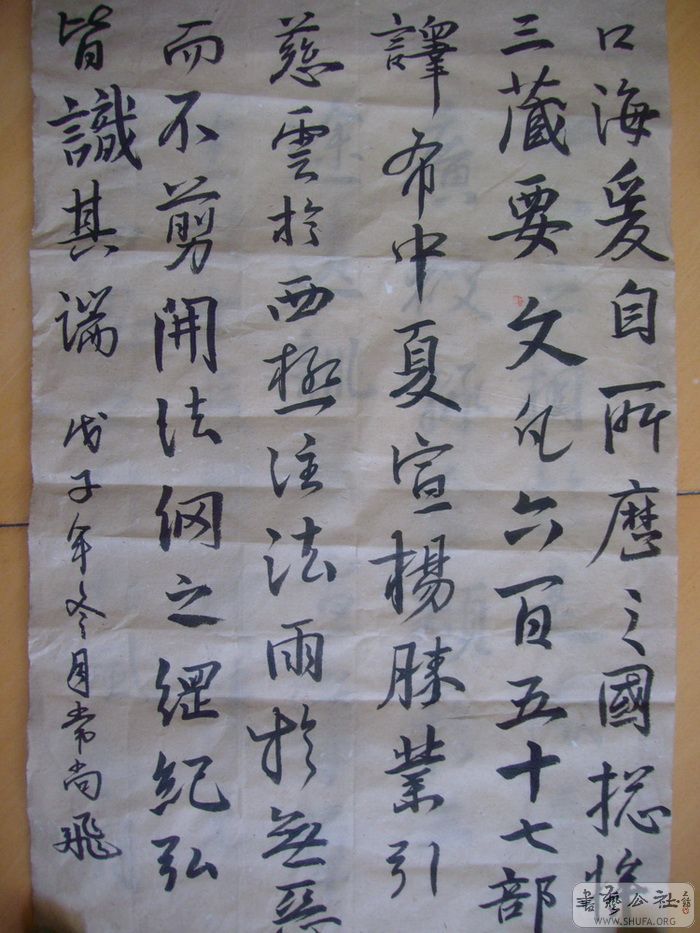 口海爰自所歷之國揔
三藏要文凡六百五十七部
譯布中夏宣楊勝業引
慈雲於西極注法雨於無
而不剪開法網之綱紀弘
皆識其端 戊子年冬月常尚飛
書藝公社
WWW.SHUFA.ORG